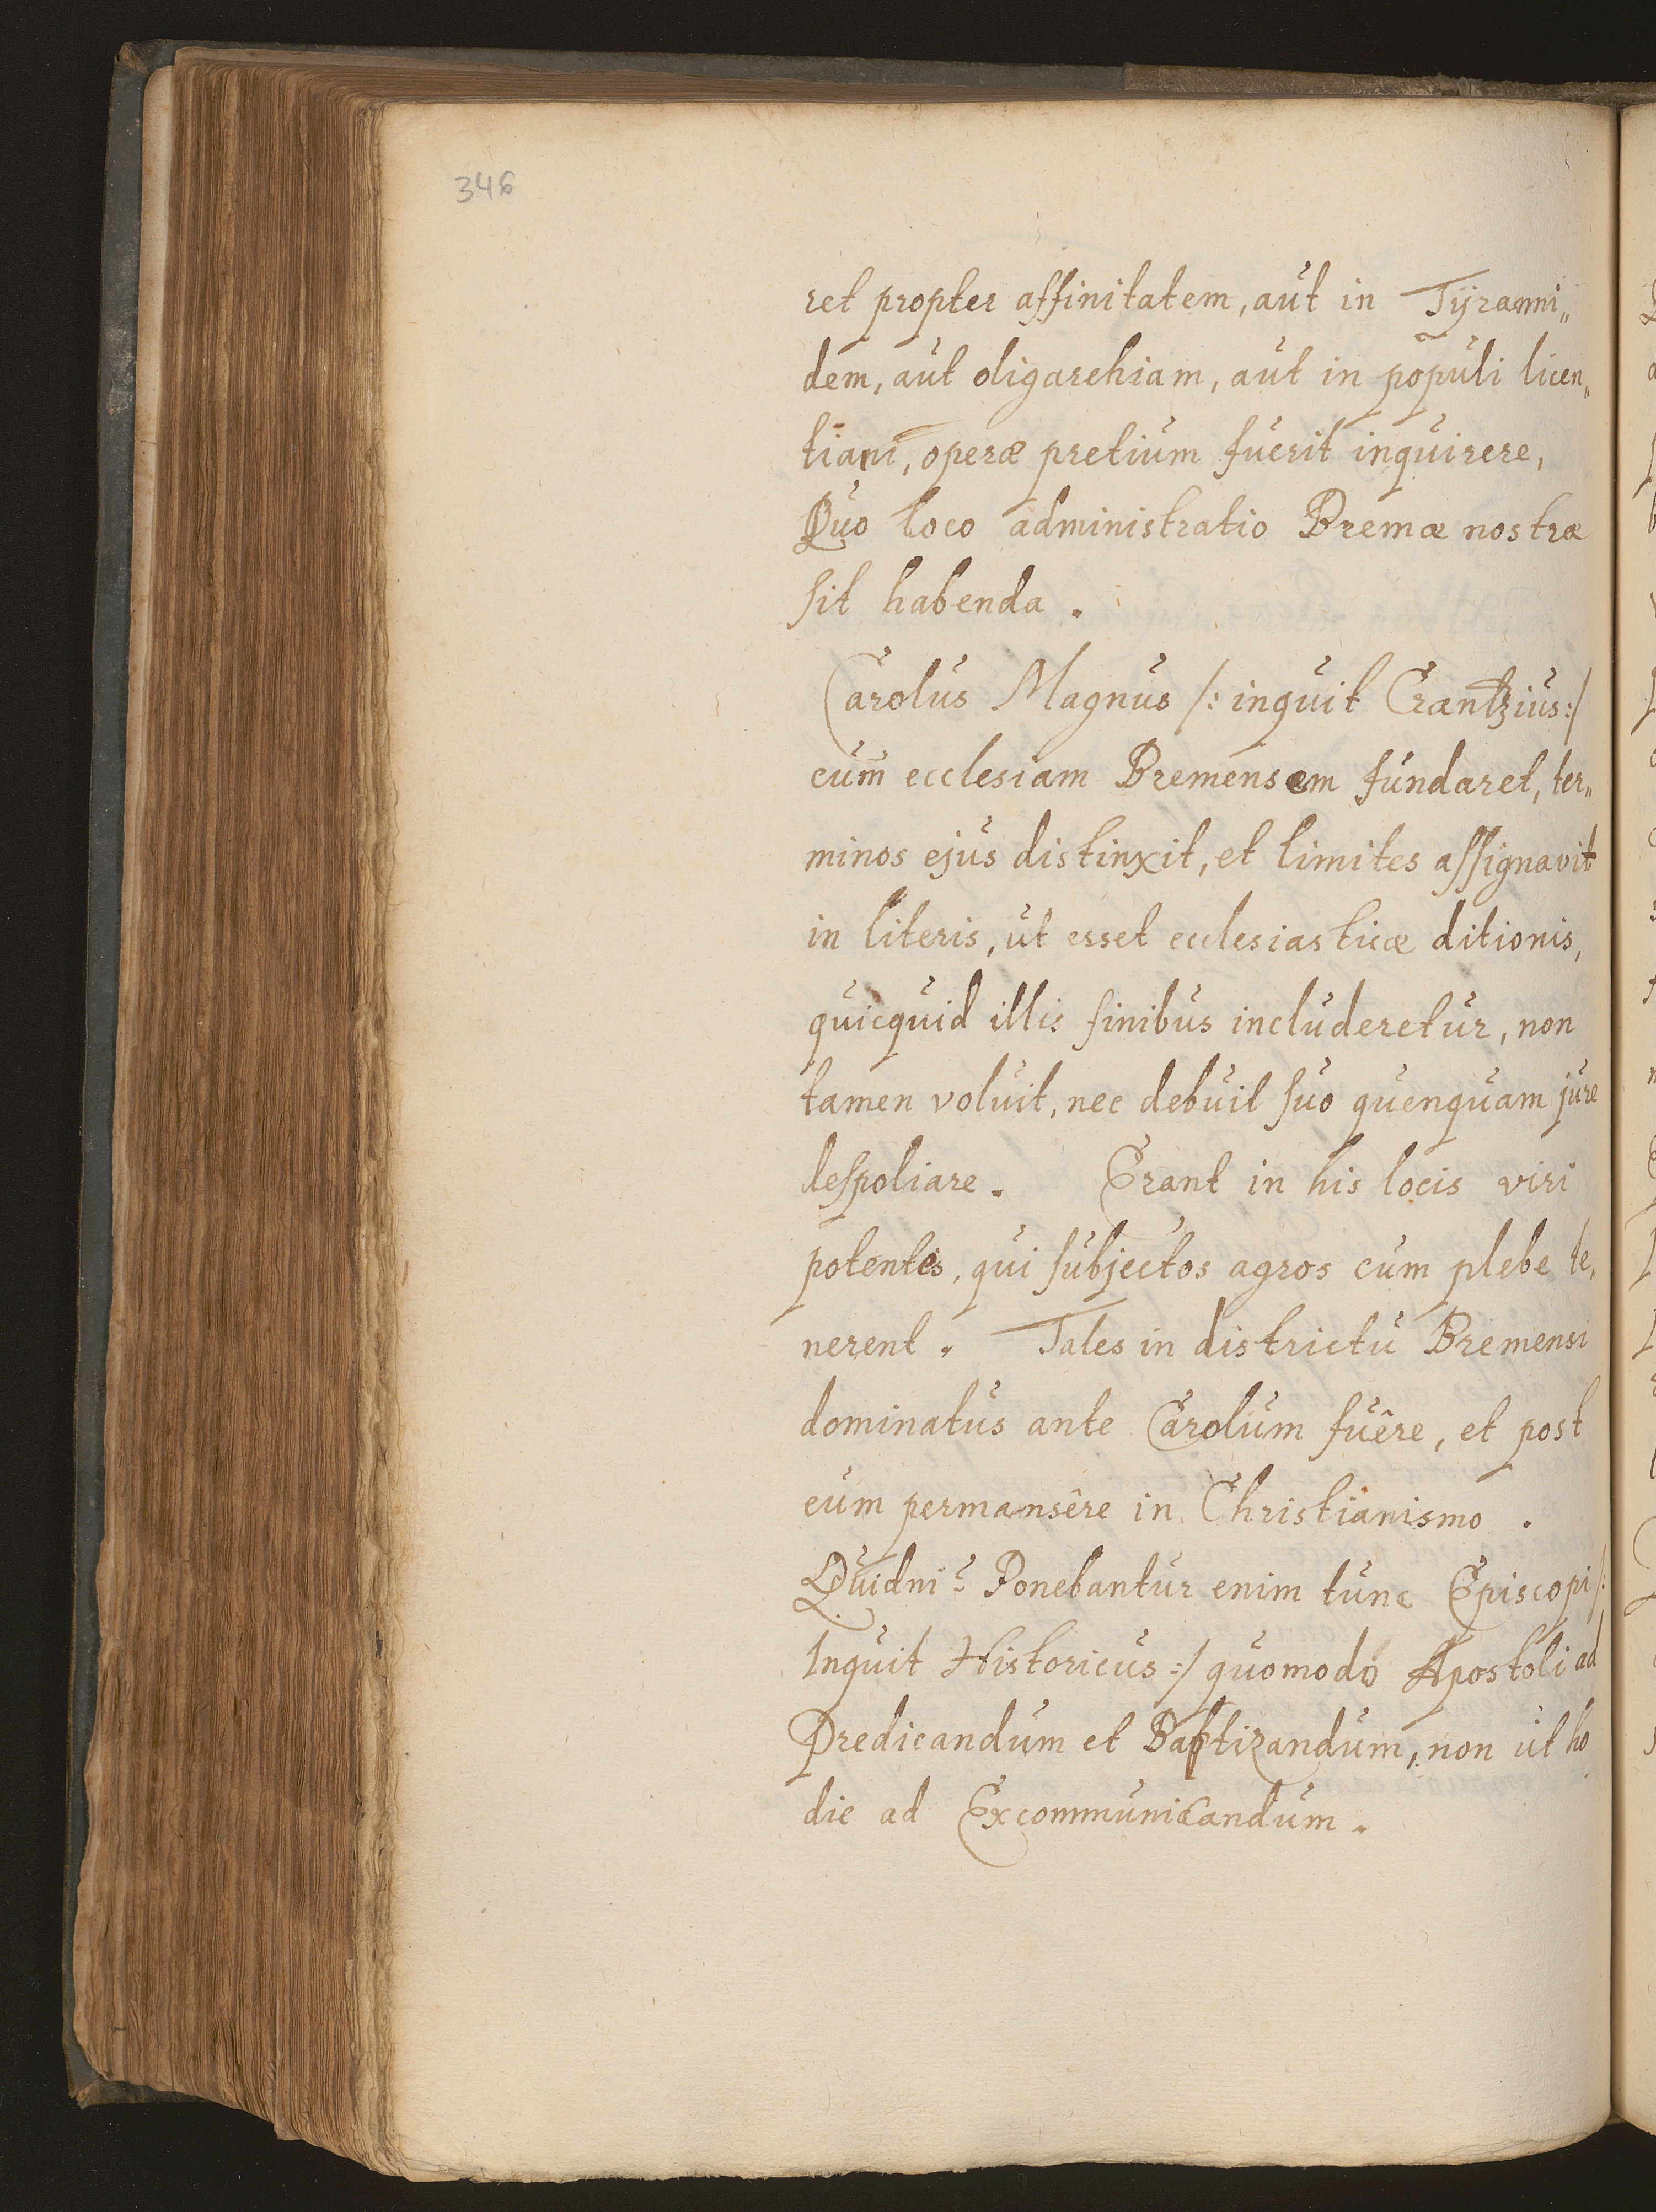 346
ret propter affinitatem, aut in Tÿranni„
dem, aut oligarchiam, aut in populi licen„
tiam, operæ pretium fuerit inquirere,
Quo loco administratio Bremæ nostræ
sit habenda.
Carolus Magnus /: inquit Crantzius :/
cum ecclesiam Bremensem fundaret, ter„
minos ejus distinxit, et limites assignavit
in literis, ut esset ecclesiasticæ ditionis,
quicquid illis finibus includeretur, non
tamen voluit, nec debuit suo quenquam jure
despoliare. Erant in his locis viri
potentes, qui subjectos agros cum plebe te„
nerent. Tales in districtu Bremensi
dominatus ante Carolum fuêre, et post
eum permansêre in Christianismo.
Quidni? Ponebantur enim tunc Episcopi /:
Inquit Historicus :/ quomodo Apostoli ad
Predicandum et Baptizandum, non ut ho
die ad Excommunicandum.